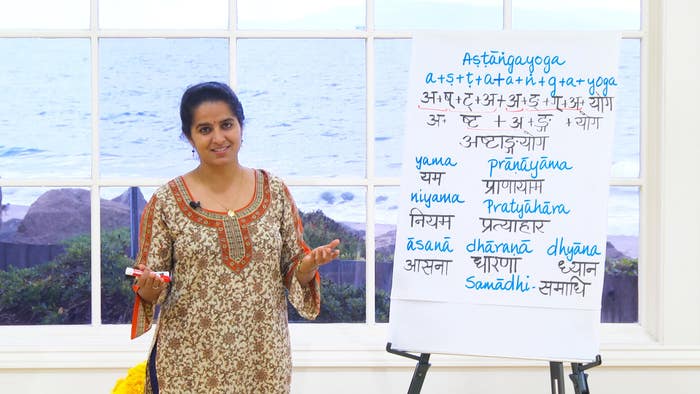 Aṣṭāṅgayoga
a+ṣ+ṭ+a+a+ṅ+g+a+yoga
अ+ष्+ट्+अ+अ+ङ्+ग्+अ+योग
अ+ ष्ट + अ+ङ्ग +योग
अष्टाङ्गयोग
yama prāṇāyāma
यम प्राणायाम
niyama Pratyāhāra
नियम प्रत्याहार
āsanā dhāraṇā dhyāna
आसना धारणा ध्यान
Samādhi - समाधि